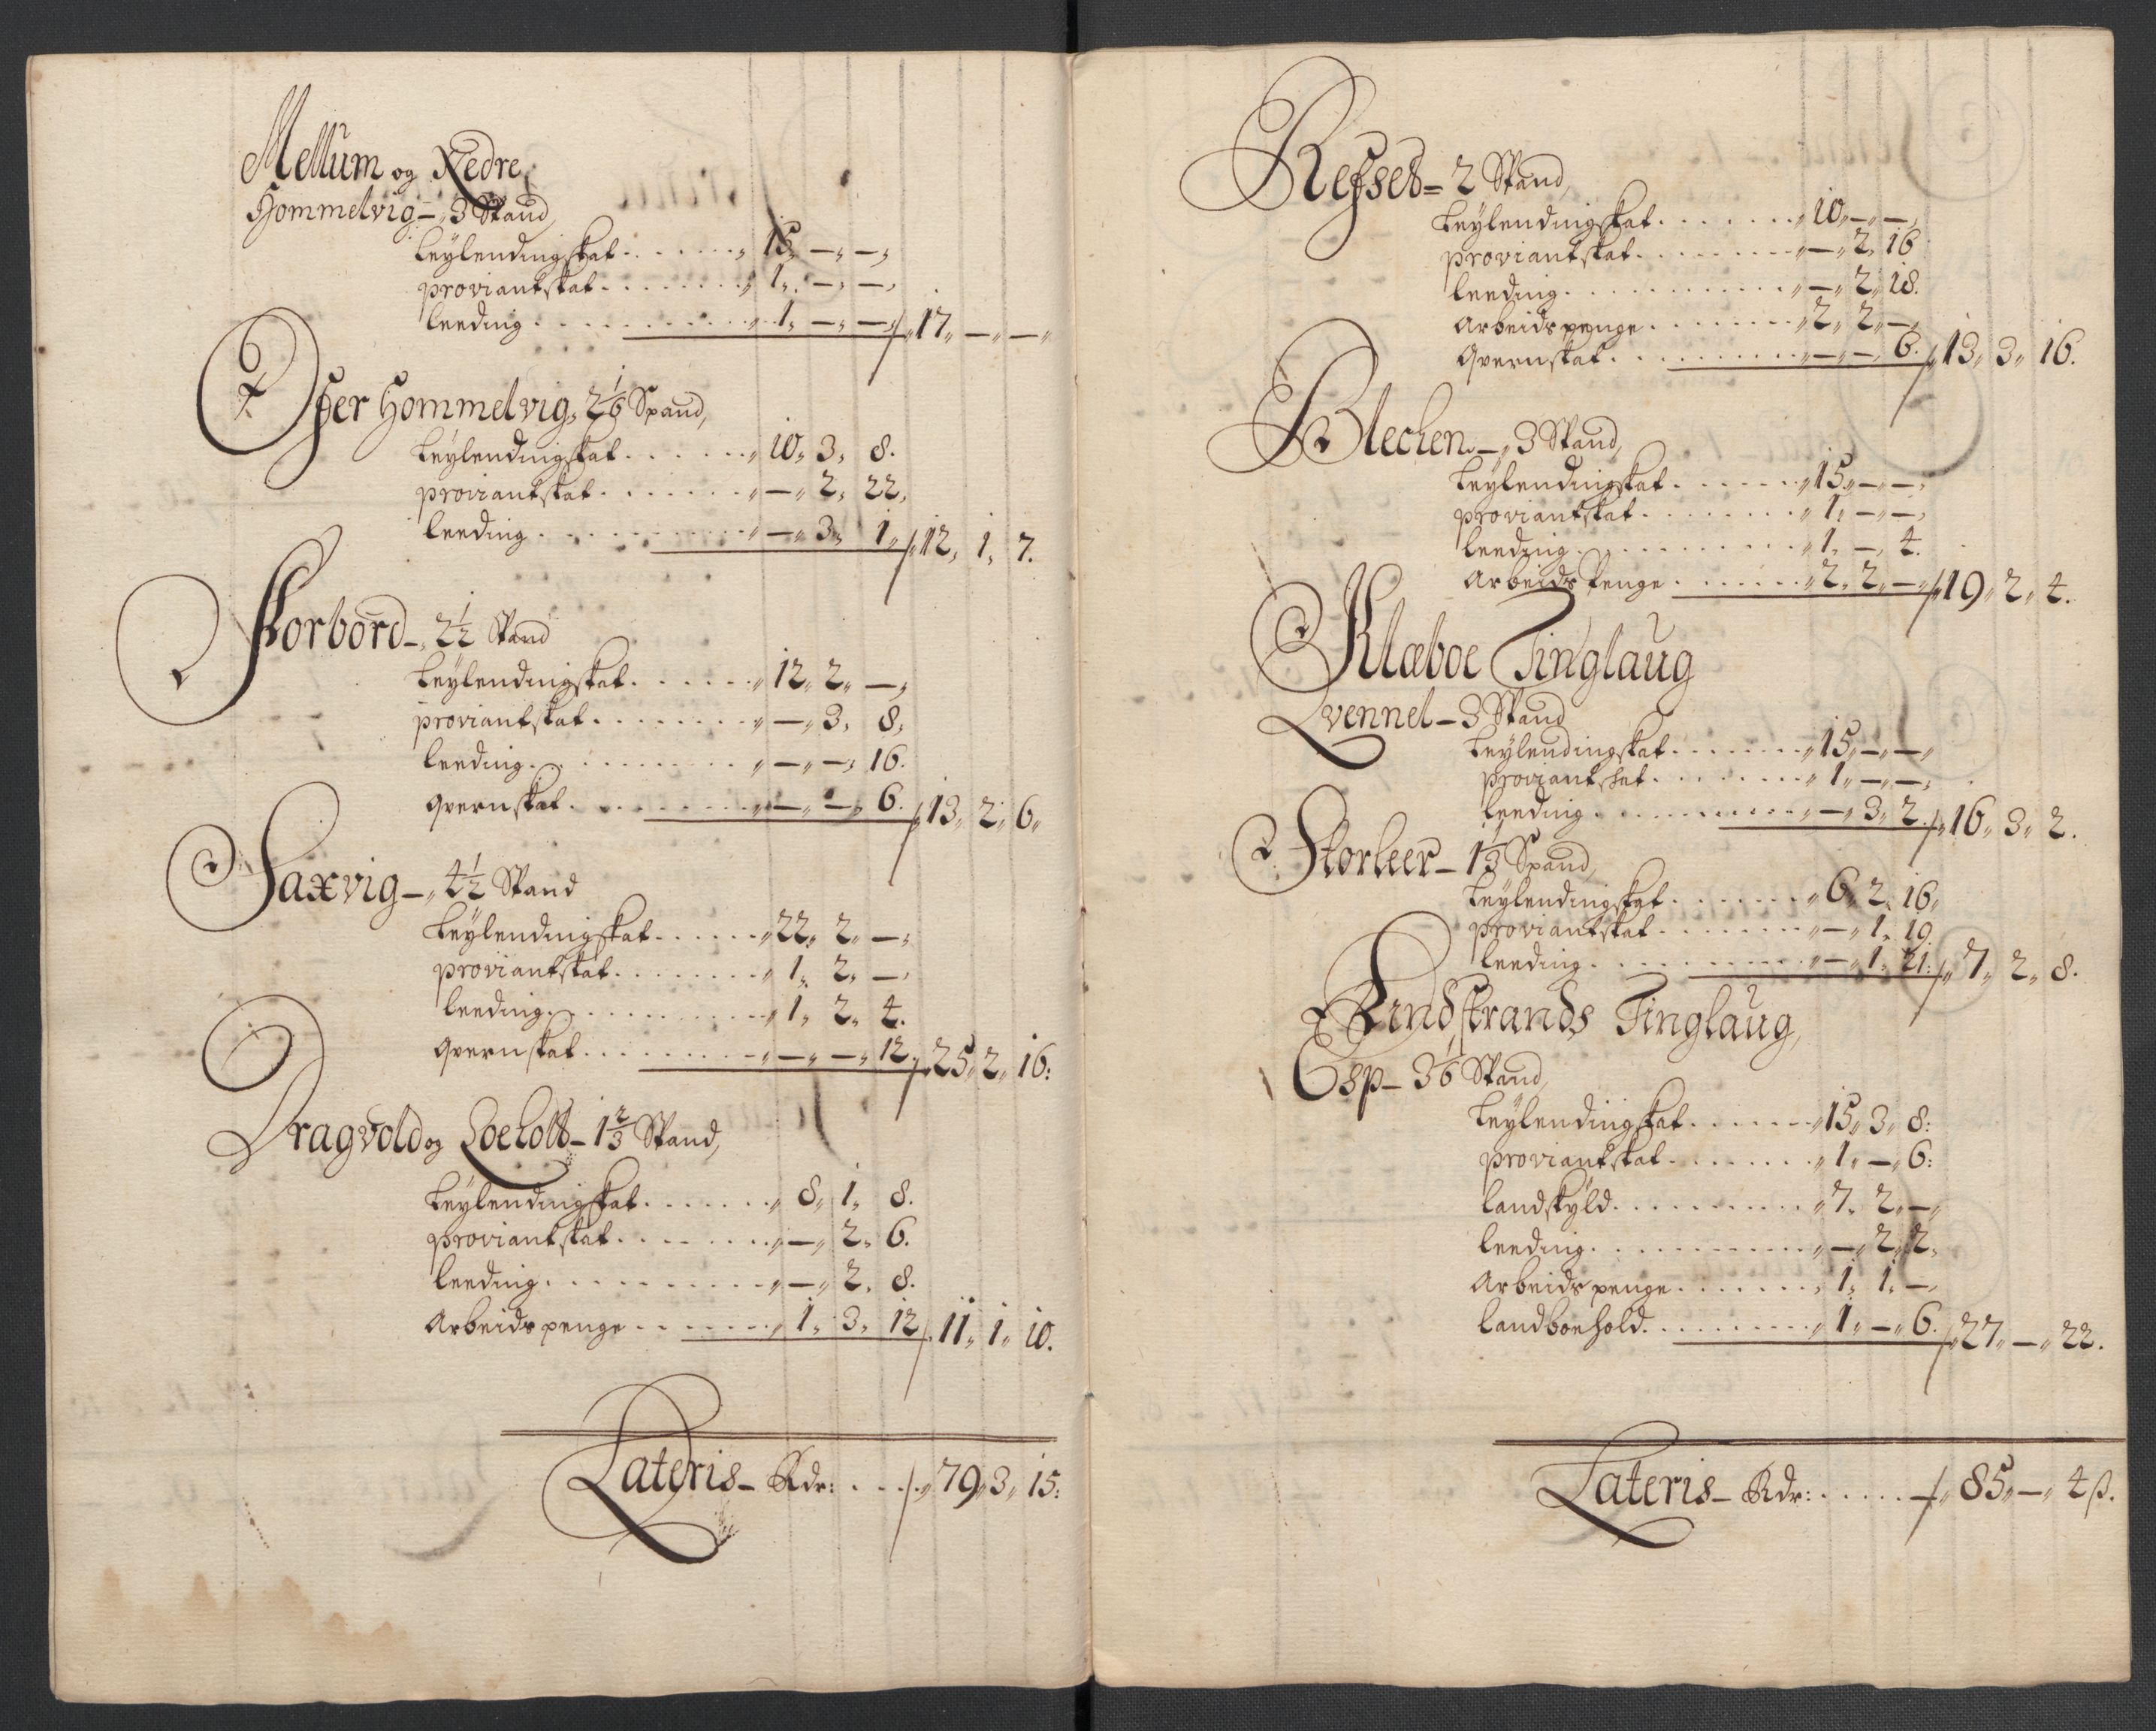 Mellum og Nedre
Hommelvig - 3 Spand,
Leylendingskat . . . . . . „ 15„ —„ —„
proviantskat . . . . . . . „ 1„ —„ —„
leeding . . . . . . . . . . „ 1„ —„ —„ / 17„ —„ —„
Øfer Hommelvig„ 2 1/6 Spand,
Leylendingskat . . . . . . „ 10„ 3„ 8.
proviantskat . . . . . . . „ —„ 2„ 22„
leeding . . . . . . . . . . „ —„ 3„ 1„ / 12„ 1„ 7.
Storbord - „ 2 1/2 Spand
Leylendingskat . . . . . . „ 12„ 2„ —„
proviantskat . . . . . . . . „ —„ 3„ 8„
leeding . . . . . . . . . . „ —„ —„ 16.
qvernskat . . . . . . . . . „ —„ —„ 6. / 13„ 2„ 6„
Saxvig - „ 4 1/2 Spand
Leylendingskat . . . . . . „ 22„ 2„ —„
proviantskat . . . . . . . . „ 1„ 2„ —„
leeding . . . . . . . . . . . „ 1„ 2„ 4.
qvernskat . . . . . . . . . „ —„ —„ 12„ / 25„ 2„ 16:
Dragvold og Loeholt - 1 2/3 Spand,
Leylendingskat . . . . . . . „ 8„ 1„ 8.
proviantskat . . . . . . . „ —„ 2„ 6.
leeding . . . . . . . . . . „ —„ 2„ 8.
Arbeidspenge . . . . . . . „ 1„ 3„ 12 / 11„ 1„ 10.
Lateris - Rdr: . . . / „ 79„ 3„ 15:
Refset - 2 Spand,
Leylendingskat . . . . . . . „ 10„ —„ —„
proviantskat . . . . . . . . „ —„ 2„ 16
leeding . . . . . . . . . . . „ —„ 2„ 18.
Arbeidspenge . . . . . . . . „ 2„ 2„ —„
qvernskat . . . . . . . . . . „ —„ —„ 6. / 13„ 3„ 16.
Blechen - „ 3 Spand,
Leylendingskat . . . . . . „ 15„ —„ —„
proviantskat . . . . . . . . „ 1„ —„ —„
leeding . . . . . . . . . . . „ 1„ —„ 4.
Arbeids penge . . . . . . „ 2„ 2„ —„ / 19„ 2„ 4.
Klæboe Tinglaug
Qvennel - 3 Spand
Leylendingskat . . . . . . . „ 15„ —„ —„
proviantskat . . . . . . . „ 1„ —„ —„
leeding . . . . . . . . . . . „ —„ 3„ 2. / 16„ 3„ 2.
Storleer - 1 1/3 Spand,
Leylendingskat . . . . . . . „ 6„ 2„ 16„
proviantskat . . . . . . . . „ —„ 1„ 19.
leeding . . . . . . . . . . . „ —„ 1„ 21. / „ 7„ 2„ 8.
Rindstrands Tinglaug,
Esp - 3 1/6 Spand,
Leylendingskat . . . . . . „ 15„ 3„ 8:
proviantskat . . . . . . . . „ 1„ —„ 6:
landskyld . . . . . . . . . . „ 7„ 2„ —„
leeding . . . . . . . . . . . „ —„ 2„ 2„
Arbeidspenge . . . . . . . „ 1„ 1„ —„
landboehold . . . . . . . . . „ 1„ —„ 6. / 27„ —„ 22.
Lateris - Rdr: . . . . . / „ 85„ —„ 4 ß.